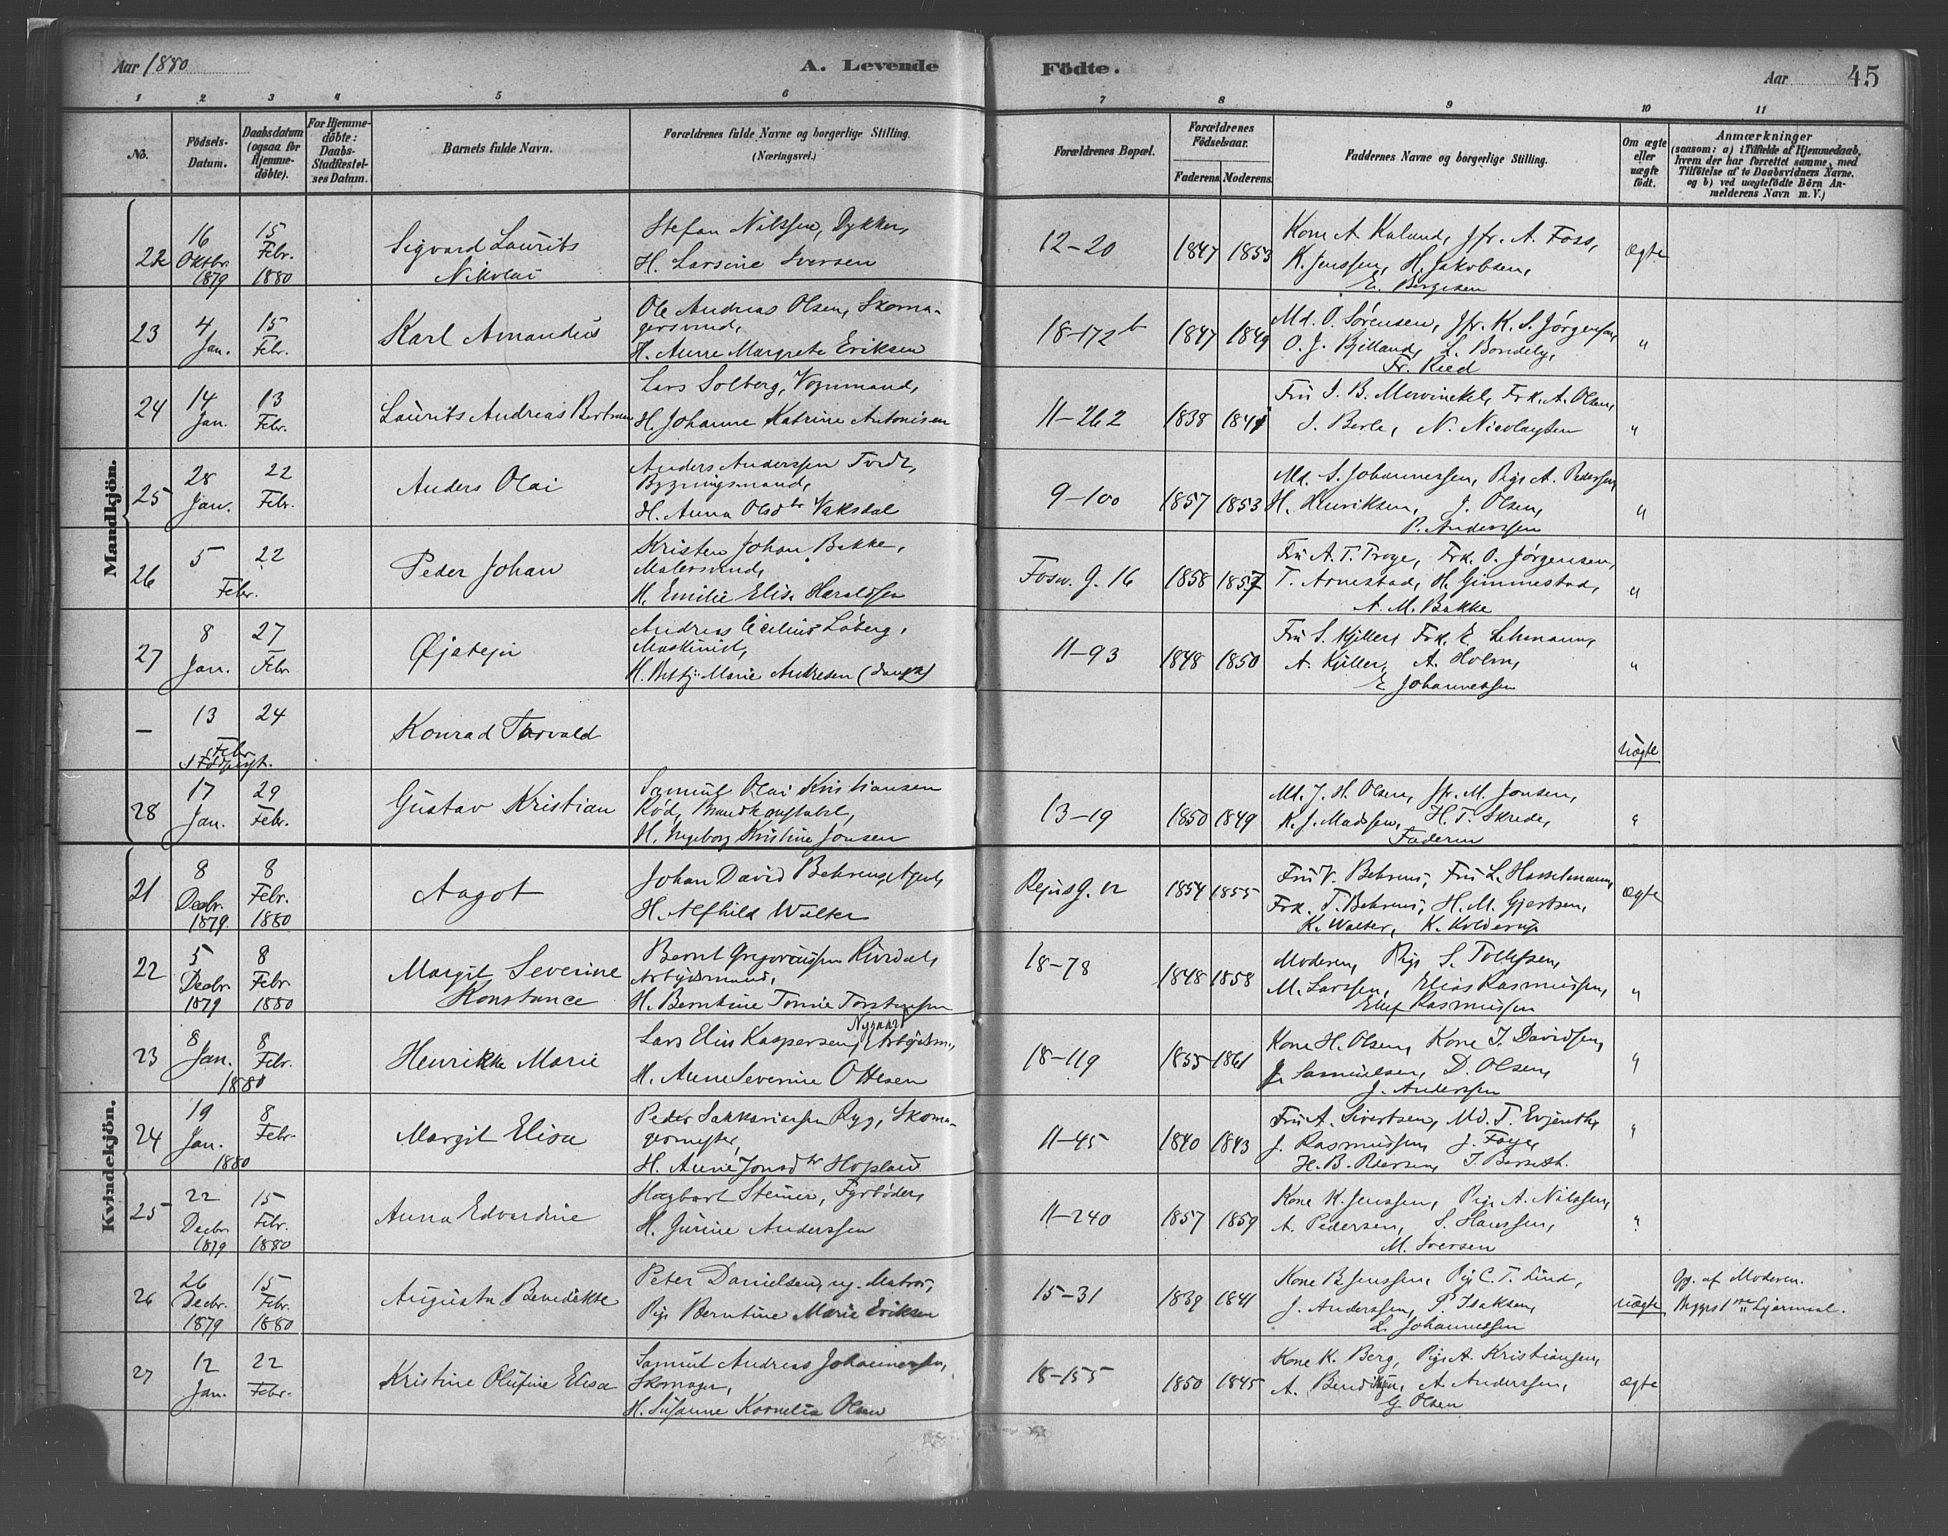 Aar 1880
A. Levende Födte.
Aar 45
1 2 3 4 5 6 7 8 9 10 11
No.
Födsels-Datum.
Daabsdatum (ogsaa for Hjemmedöbte).
For Hjemmedöbte: Daabs-Stadfæstelses Datum.
Barnets fulde Navn.
Forældrenes fulde Navne og borgerlige Stilling.
(Næringsvei.)
Forældrenes Bopæl.
Forældrenes Födselsaar.
Faderens. Moderens.
Faddernes Navne og borgerlige Stilling.
Om ægte eller uægte födt.
Anmærkninger
(saasom: a) i Tilfælde af Hjemmedaab,
hvem der har forrettet samme, med
Tilföielse af to Daabsvidners Navne,
og b) ved uægtefödte Börn Anmelderens Navn m. V.)
Mandkjön.
22 16 Oktbr. 1879 15 Febr. 1880 Sigvard Laurits Nikolai
Stefan Nilssen, Dykker,
H. Larsine Iversen
12-20 1847 1853
Kone A. Kaland, Jfr. A. Foss,
K. Jenssen, H. Jakobsen,
E. Børgesen
ægte
23 4 Jan. 15 Febr. Karl Amandus
Ole Andreas Olsen, Skoma-
gersvend,
H. Anne Margrete Eriksen
18-172b 1847 1849
Md. O. Sørensen, Jfr. K. S. Jørgensen,
O. J. Bjelland, L. Bondeby,
Fr. Ried
"
24 14 Jan. 13 Febr. Laurits Andreas Bertram
Lars Solberg, Vognmand,
H. Johanne Katrine Antonisen
11-262 1838 1841
Fru I. B. Mowinckel, Frk. A. Olsen,
I. Berle, N. Nicolaysen
"
25 28 Jan. 22 Febr. Anders Olai
Anders Anderssen Tvedt,
Bygningsmand,
H. Anna Olsdtr Vaksdal
9-100 1857 1853
Md. S. Johannessen, Pige A. Pedersen,
H. Henriksen, J. Olsen,
P. Anderssen
"
26 5 22 Febr. Peder Johan
Kristen Johan Bakke,
Malersvend,
H. Emilie Elise Haraldsen
Fosw. G. 16 1858 1857
Fru A. T. Troye, Frk. O. Jørgensen,
T. Arnestad, H. Gimmestad,
A. M. Bakke
"
27 8 Jan. 27 Febr. Øjstejn
Andreas Cecilius Løberg,
Maskinist,
H. Marie Andresen
11-93 1848 1850
Fru S. Kjeller, Frk. E. Lehmann,
A. Kjeller, A. Holm,
E. Johannessen
"
- 13 24 Febr. Konrad Torvald
uægte
28 17 Jan. 29 Febr. Gustav Kristian
Samuel Olai Kristiansen
Rød, Brandkonstabel,
H. Ingeborg Kristine Jonsen
13-19 1850 1849
Md. J. H. Olsen, Jfr. M. Jonsen,
K. J. Madssen, H. T. Skrede,
Faderen
"
Kvindekjön.
21 8 Decbr. 1879 8 Febr. 1880 Aagot
Johan David Behrens, Agent,
H. Alfhild Walter
G. 12 1854 1855
Fru V. Behrens, Fru L. Hasselmann,
Frk. T. Behrens, H. M. Gjertsen,
K. Walter, K. Kolderup
ægte
22 5 Decbr. 1879 8 Febr. 1880 Margit Severine Konstance
Bernt Gregoriussen
Arbejdsmand,
H. Berntine Tomine Torstensen
18-78 1848 1858
Moderen, Pige S. Tollefsen,
M. Larssen, Elias Rasmussen,
Ellef Rasmussen
"
23 8 Jan. 8 Febr. 1880 Henrikke Marie
Lars Elias Kaspersen Nygaard, Arbejdsm.,
H. Anne Severine Ottesen
18-119 1855 1861
Kone H. Olsen, Kone I. Davidsen,
J. Samuelsen, D. Olsen,
J. Anderssen
"
24 19 Jan. 8 Febr. 1880 Margit Elisa
Peder Sakkariassen Ryg, Skoma-
germester,
H. Anne Jonsdtr Hopland
11-45 1840 1843
Fru A. Sivertsen, Md. T. Evjenth,
J. Rasmussen, J. Foye,
H. B. Petersen, T. Berseth.
"
25 22 Decbr. 1879 15 Febr. 1880 Anna Edvardine
Hagbart Steiner, Fyrbøder,
H. Jørine Anderssen
11-240 1857 1859
Kone K. Jenssen, Pige A. Nilssen,
A. Pedersen, S. Hanssen,
M. Iversen
"
26 26 Decbr. 1879 15 Febr. 1880 Augusta Benedikte
Peter Danielsen, ug. Matros,
Pige Berntine Marie Eriksen
15-31 1839 1841
Kone B. Jenssen, Pige C. T. Lind,
J. Anderssen, P. Isaksen,
L. Johannessen
uægte
Opg. af Moderen.
27 12 Jan. 22 Febr. Kristine Olufine Elisa
Samuel Andreas Johannessen,
Skomager,
H. Susanne Kornelia Olsen
18-155 1850 1845
Kone K. Berg, Pige A. Kristiansen,
A. Benediktsen, A. Anderssen,
G. Olsen
ægte